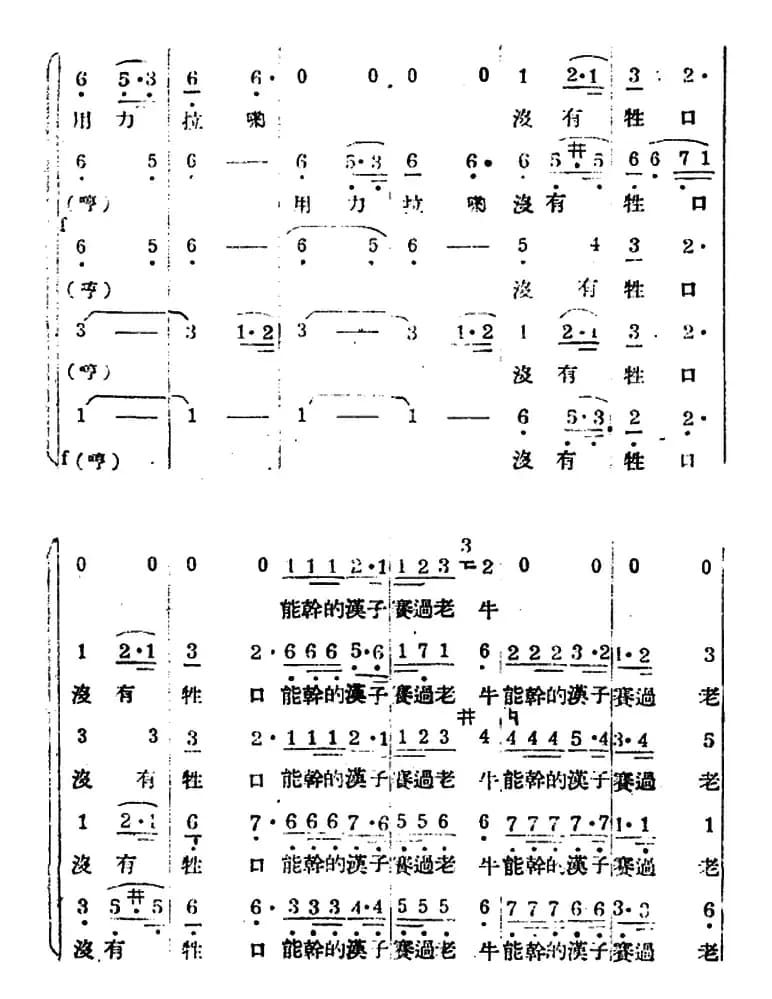 6 5·3 6 6· 0 0 0 0 1 2·1 3 2·
用 力 拉 喲 沒 有 牲 口
6 5 6 — 6 5·3 6 6· 6 #5·5 6 6 7 1
(哼) 用 力 拉 喲 沒 有 牲 口
f
6 5 6 — 6 5 6 — 5 4 3 2·
(哼) 沒 有 牲 口
3 — 3 1·2 3 — 3 1·2 1 2·1 3 2·
(哼) 沒 有 牲 口
1 — 1 — 1 — 1 — 6 5·3 2 2·
f (哼) 沒 有 牲 口
3
0 0 0 0 1 1 1 2·1 1 2 3 2 0 0 0 0
能幹的漢子賽過老 牛
1 2·1 3 2· 6 6 6 5·6 1 7 1 6 2 2 2 3·2 1·2 3
沒 有 牲 口 能幹的漢子賽過老 牛能幹的漢子賽過 老
# ♮
3 3 3 2· 1 1 1 2·1 1 2 3 4 4 4 4 5·4 3·4 5
沒 有 牲 口 能幹的漢子賽過老 牛能幹的漢子賽過 老
1 2·1 6 7· 6 6 6 7·6 5 5 6 6 7 7 7 7·7 1·1 1
沒 有 牲 口 能幹的漢子賽過老 牛能幹的漢子賽過 老
3 #5·5 6 6· 3 3 3 4·4 5 5 5 6 7 7 7 6 6 3·3 6
沒 有 牲 口 能幹的漢子賽過老 牛能幹的漢子賽過 老